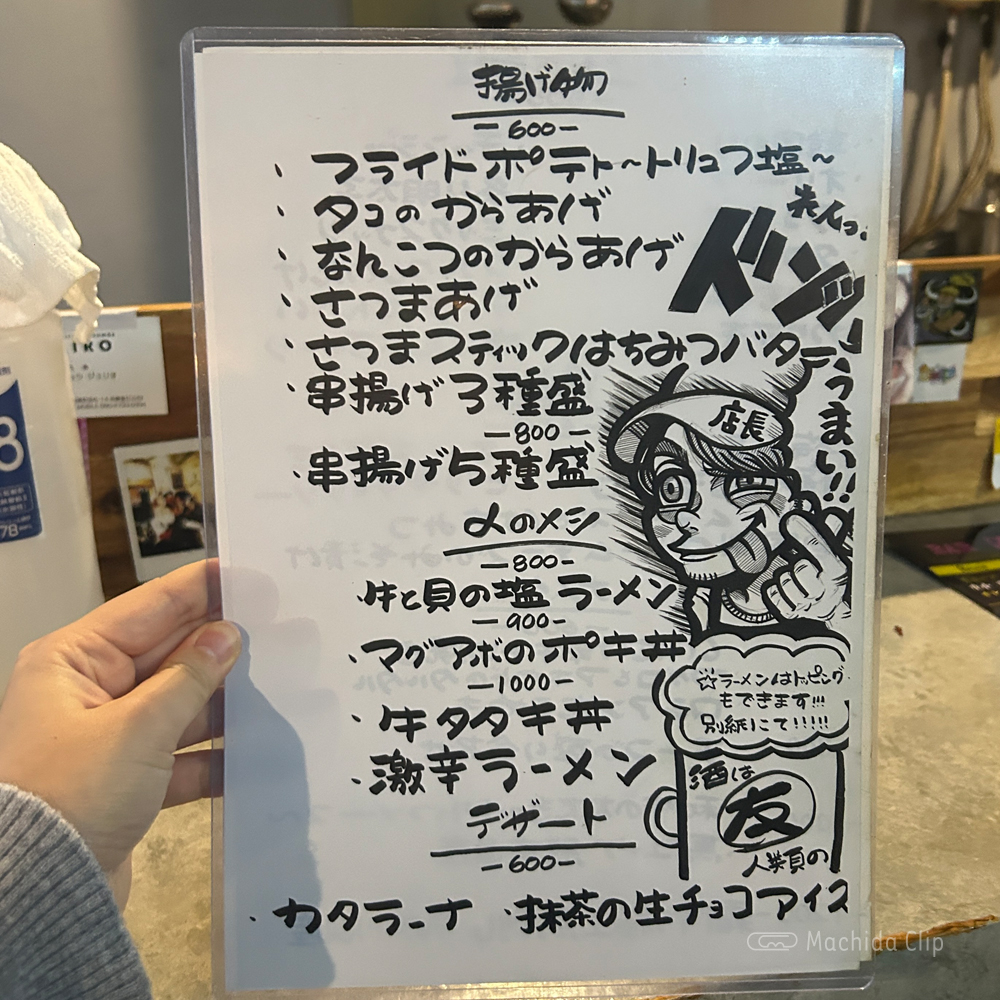 揚げ物
-600-
・フライドポテト~トリュフ塩~
・タコのからあげ
・なんこつのからあげ
・さつまあげ
・さつまスティックはちみつバター
・串揚げ3種盛
-800-
・串揚げ5種盛
〆のメシ
-800-
牛と貝の塩ラーメン
-900-
・マグアボのポキ丼
-1000-
・牛タタキ丼
・激辛ラーメン
デザート
-600-
・カタラーナ ・抹茶の生チョコアイス
ドンッ
うまい!!
店長
☆ラーメンはトッピング
もできます!!!
別紙にて!!!!!
酒は
友
人類の
IRO
8
78
Machida Clip